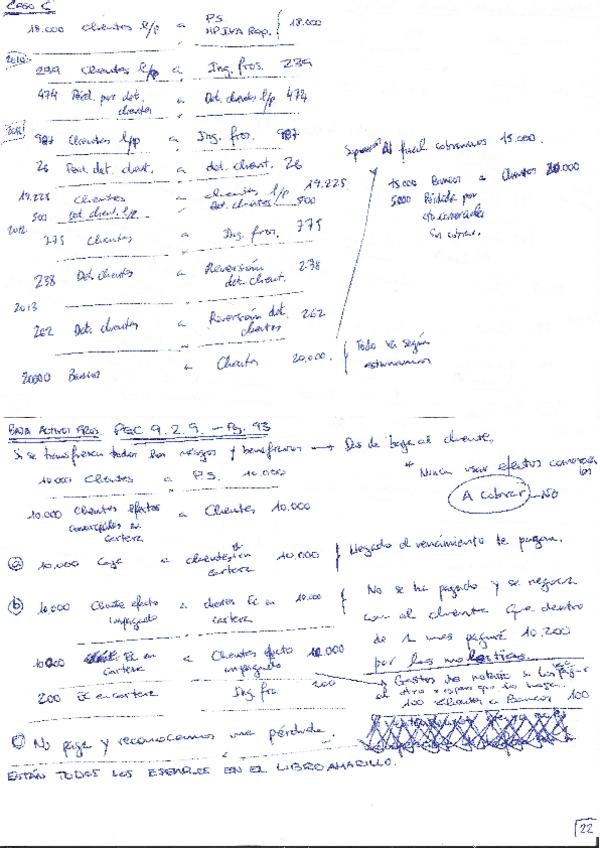 Caso C
18.000 Clientes l/p a P.S. 18.000
HP IVA Rep.
2010
239 Clientes l/p a Ing. fros. 239
474 Pérd. por det. clientes a Det. clientes l/p 474
2011
987 Clientes l/p a Ing. fros. 987
26 Perd. det. client. a det. client. 26
19.225 Clientes a clientes l/p 19.225
500 Det client. l/p a Det. clientes 500
2012
775 Clientes a Ing. fros. 775
238 Det. clientes a Reversión det. client. 238
2013
262 Det. clientes a Reversión det. clientes 262
20000 Bancos a Clientes 20.000.
Todo va según estimamos
Al final cobramos 15.000.
15000 Bancos a Clientes 20.000
5000 Pérdida por
cto comerciales
sin cobrar.
BAJA ACTIVOS FROS. PGC 9.2.9. – Pg. 93
Si se transfieren todos los riesgos y beneficios → Das de baja al cliente.
10.000 Clientes a P.S. 10.000
* Nunca usar efectos comerciales
A cobrar – NO
10.000 Clientes efectos comerciales en cartera a Clientes 10.000
a) 10.000 Caja a clientes, en cartera 10.000
Llegado el vencimiento te pagan.
b) 10.000 Cliente efecto impagado a clientes Ec en cartera 10.000
No se ha pagado y se negocia
con el cliente que dentro
de 1 mes pagará 10.200
por las molestias.
Ec en cartera a Clientes efecto impagado 10.000
200 Ec en cartera Ing. fro 200
→ Gastos de notario si los
100 Clientes a Bancos 100
c) No paga y reconocemos una pérdida.
ESTÁN TODOS LOS EJEMPLOS EN EL LIBRO AMARILLO.
22